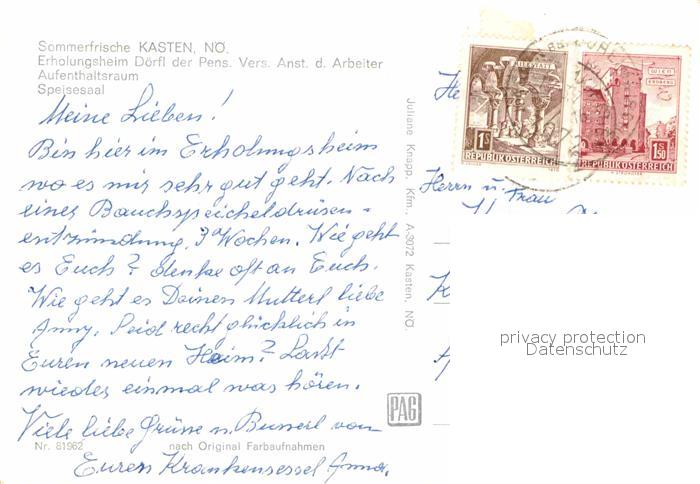 Sommerfrische KASTEN, NÖ.
Erholungsheim Dörfl der Pens. Vers. Anst. d. Arbeiter
Aufenthaltsraum
Speisesaal
Meine Lieben!
Bin hier im Erholungsheim
wo es mir sehr gut geht. Nach
einer Bauchspeicheldrüsen-
entzündung. 3 Wochen. Wie geht
es Euch? denke oft an Euch.
Wie geht es Deinen Mutterl liebe
Anny. Seid recht glücklich in
Euren neuen Heim? Lasst
wieder einmal was hören.
Viele liebe Grüsse u. Busserl von
Euren Krankensessel Anna.
Nr. 81962
nach Original Farbaufnahmen
PAG
Juliane Knapp, Kfm., A-3072 Kasten, NÖ.
MILLSTATT
1S
REPUBLIK ÖSTERREICH
WIEN
ERDBERG
1.50
REPUBLIK ÖSTERREICH
Herrn u. Frau
privacy protection
Datenschutz